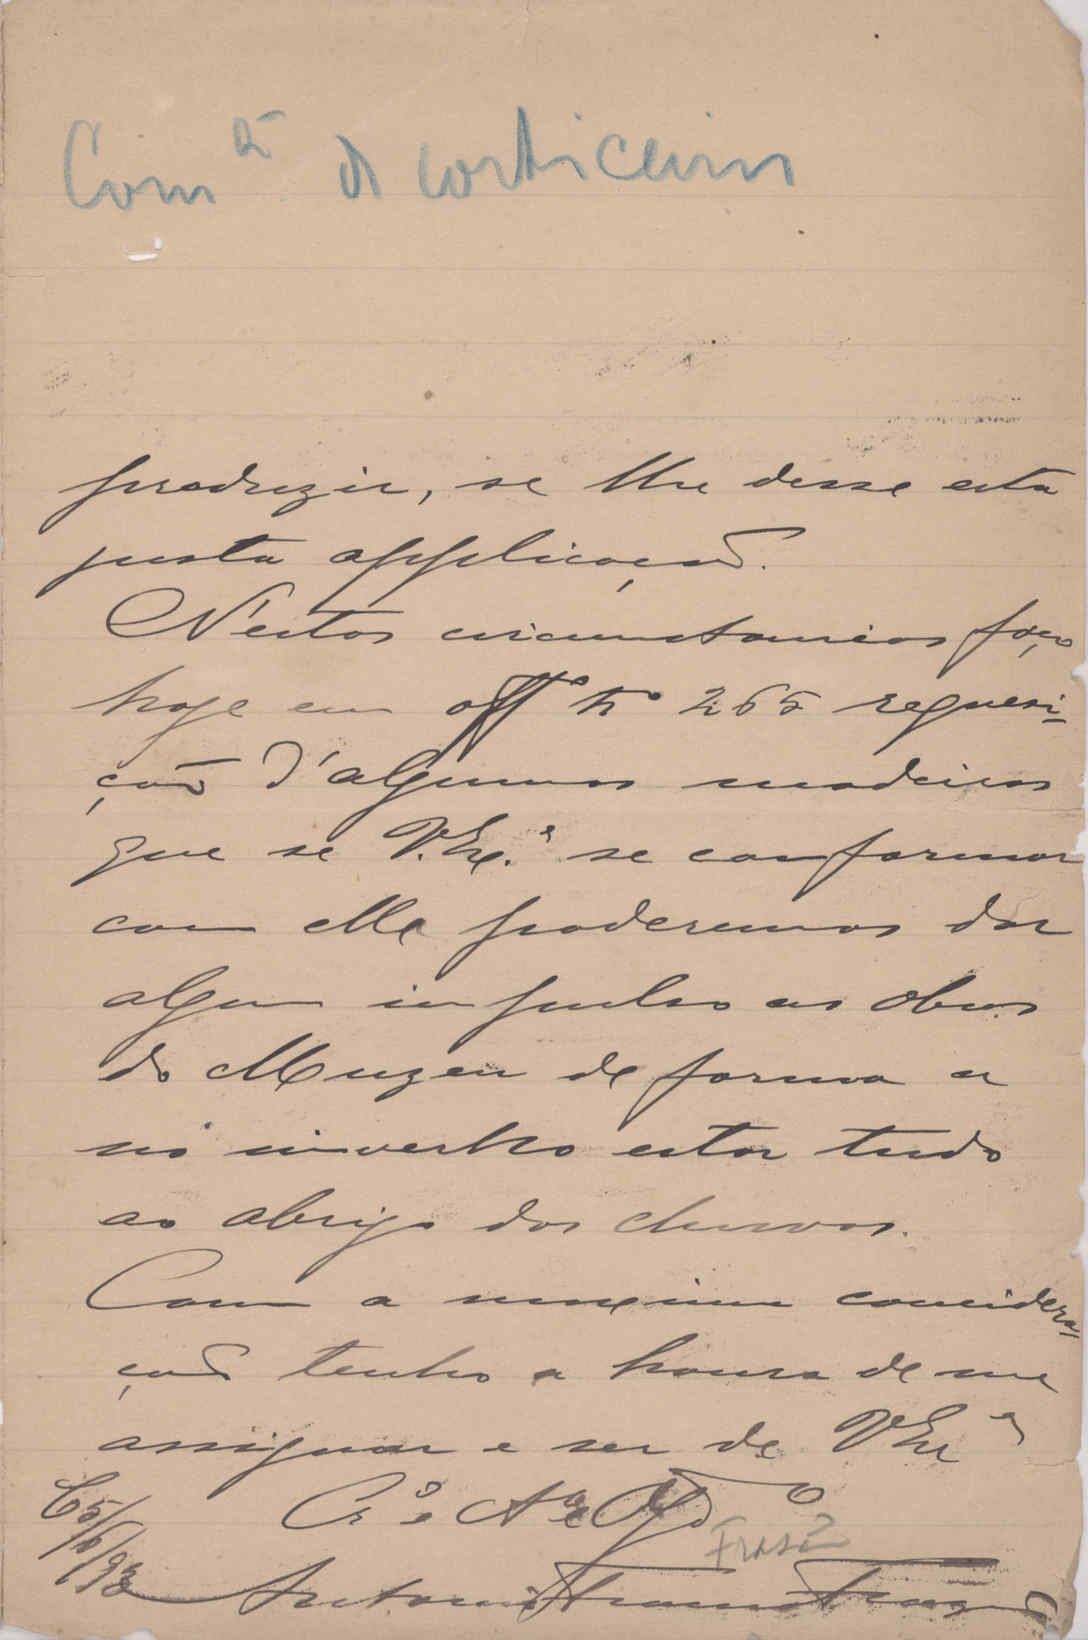 Com.ª de corticeiros
produzir, se lhe desse esta
justa applicação.
N'estas circumstancias faço
hoje em off.º nº 265 requesi-
ção d'algumas madeiras
que se V. Ex.ª se conformar
com ella poderemos dar
algum impulso as obras
do Muzeu de forma a
no inverno estar tudo
ao abrigo das chuvas.
Com a maxima considera-
ção tenho a honra de me
assignar e ser de V Exª
Cr.º e Am.º Obg.º
Frasão
C 5/6/93
Antonio Franco Frazão